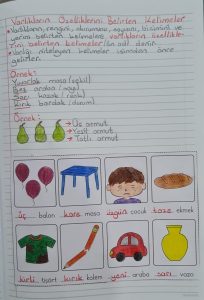 Varlıkların Özelliklerini Belirten Kelimeler
Varlıkların, rengini, durumunu, sayısını, biçimini ve
yerini belirten kelimelere varlıkların özellikle-
rini belirten kelimeler/ön ad denir.
Varlığı niteleyen kelimeler isimden önce
gelirler.
Örnek:
Yuvarlak masa (şekil)
Beş araba (sayı)
Sarı kazak (renk)
Kırık bardak (durum)
Örnek:
→ Üç armut
→ Yeşil armut
→ Tatlı armut
üç balon
kare masa
üzgün çocuk
taze ekmek
kirli tişört
kırık kalem
yeni araba
sarı vazo